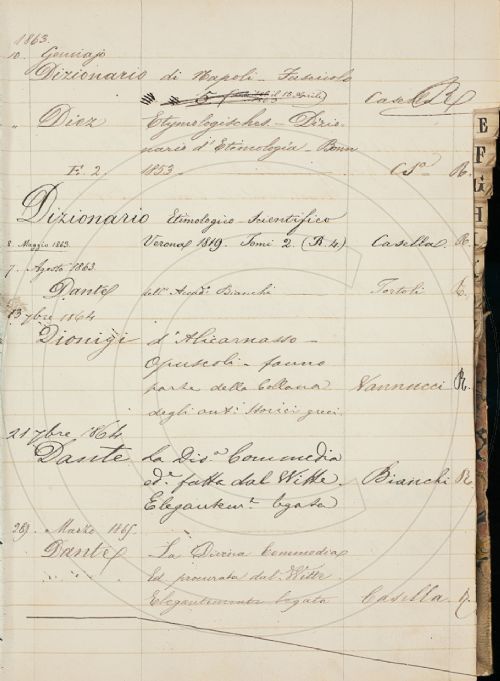 1863.
10. Gennajo
Dizionario di Napoli - Fascicolo
5 il 13 Aprile Casella R
1863
" Diez Etymologisches - Dizio-
nario d'Etimologia. Bonn
F. 2. 1853. Cso R.
Dizionario Etimologico-Scientifico
8. Maggio 1863. Verona 1819. Tomi 2. (B. 4) Casella R.
7. Agosto 1863.
Dante dell' Accad. Bianchi Tortoli R.
13 7bre 1864
Dionigi d'Alicarnasso -
Opuscoli - fanno
parte della Collana Vannucci R.
degli anti storici greci
21 7bre 1864
Dante La Diva Commedia
ed. fatta dal Witte. Bianchi R.
Elegantem.te legata
Marzo 1865.
Dante La Divina Commedia
Ed procurata dal Witte
Elegantemente legata Casella R.
E
F
G
H